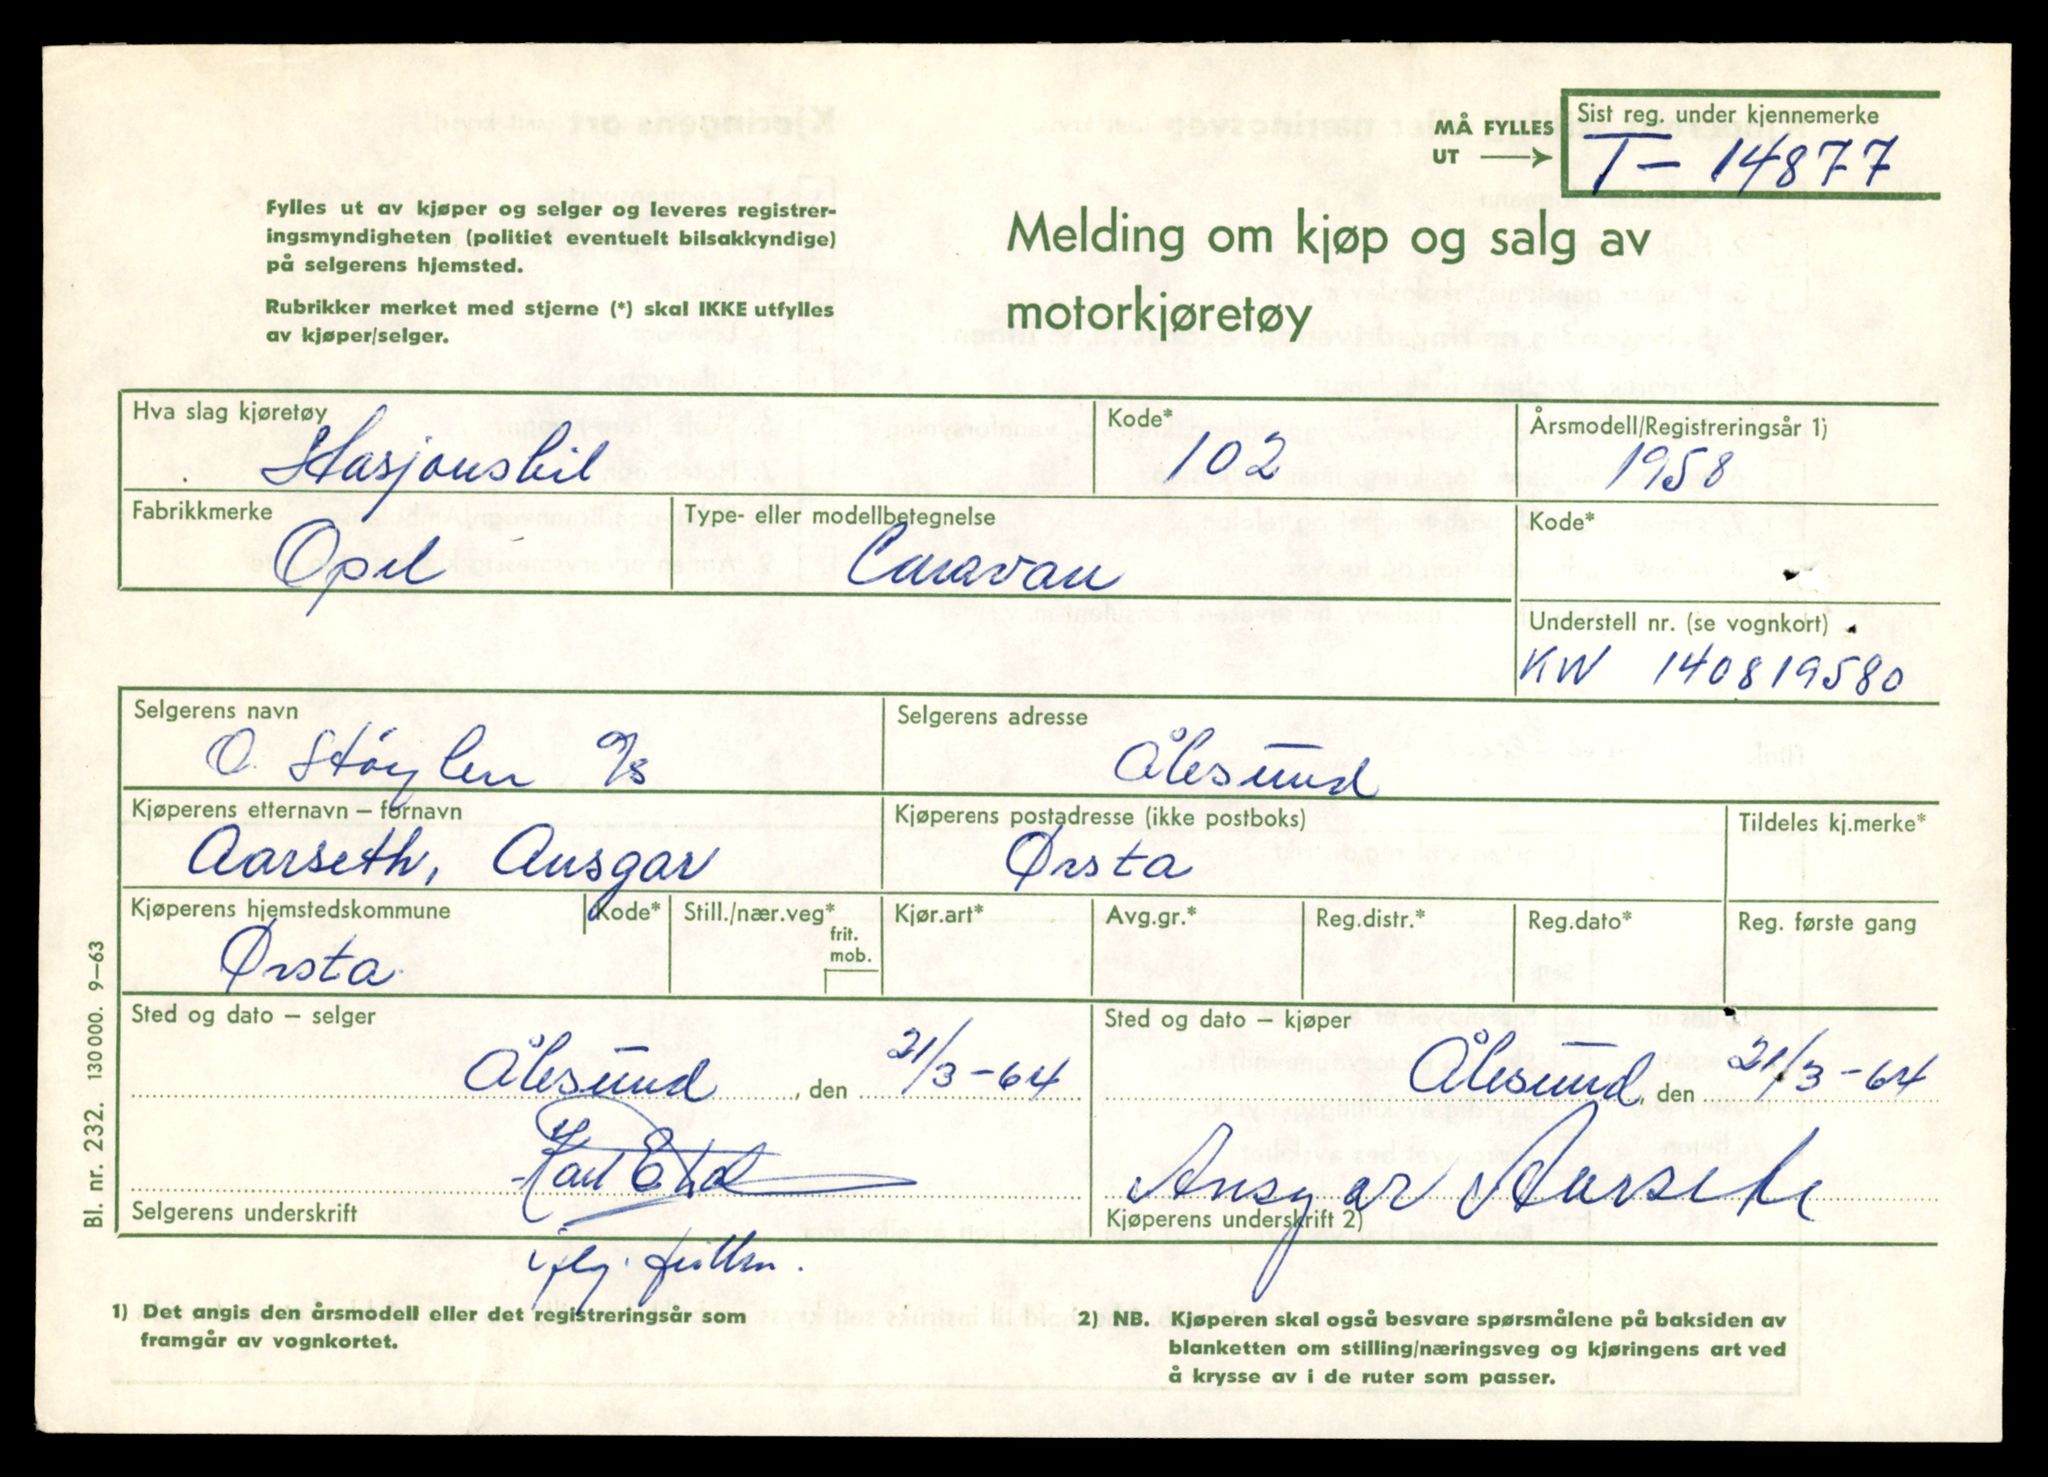 MÅ FYLLES
UT
Sist reg. under kjennemerke
T - 14877
Fylles ut av kjøper og selger og leveres registrer-
ingsmyndigheten (politiet eventuelt bilsakkyndige)
på selgerens hjemsted.
Rubrikker merket med stjerne (*) skal IKKE utfylles
av kjøper/selger.
Melding om kjøp og salg av
motorkjøretøy
Hva slag kjøretøy
Stasjonsbil
Kode*
102
Årsmodell/Registreringsår 1)
1958
Fabrikkmerke
Opel
Type- eller modellbetegnelse
Caravan
Kode*
Understell nr. (se vognkort)
KW 140819580
Selgerens navn
O. Støylen A/S
Selgerens adresse
Ålesund
Kjøperens etternavn – fornavn
Aarseth, Ansgar
Kjøperens postadresse (ikke postboks)
Ørsta
Tildeles kj.merke*
Kjøperens hjemstedskommune
Ørsta
Kode*
Still./nær.veg*
frit.
mob.
Kjør.art*
Avg.gr.*
Reg.distr.*
Reg.dato*
Reg. første gang
Sted og dato – selger
Ålesund, den 21/3-64
Selgerens underskrift
Sted og dato – kjøper
Ålesund, den 21/3-64
Ansgar Aarseth
Kjøperens underskrift 2)
1) Det angis den årsmodell eller det registreringsår som
framgår av vognkortet.
2) NB. Kjøperen skal også besvare spørsmålene på baksiden av
blanketten om stilling/næringsveg og kjøringens art ved
å krysse av i de ruter som passer.
Bl. nr. 232. 130 000. 9–63